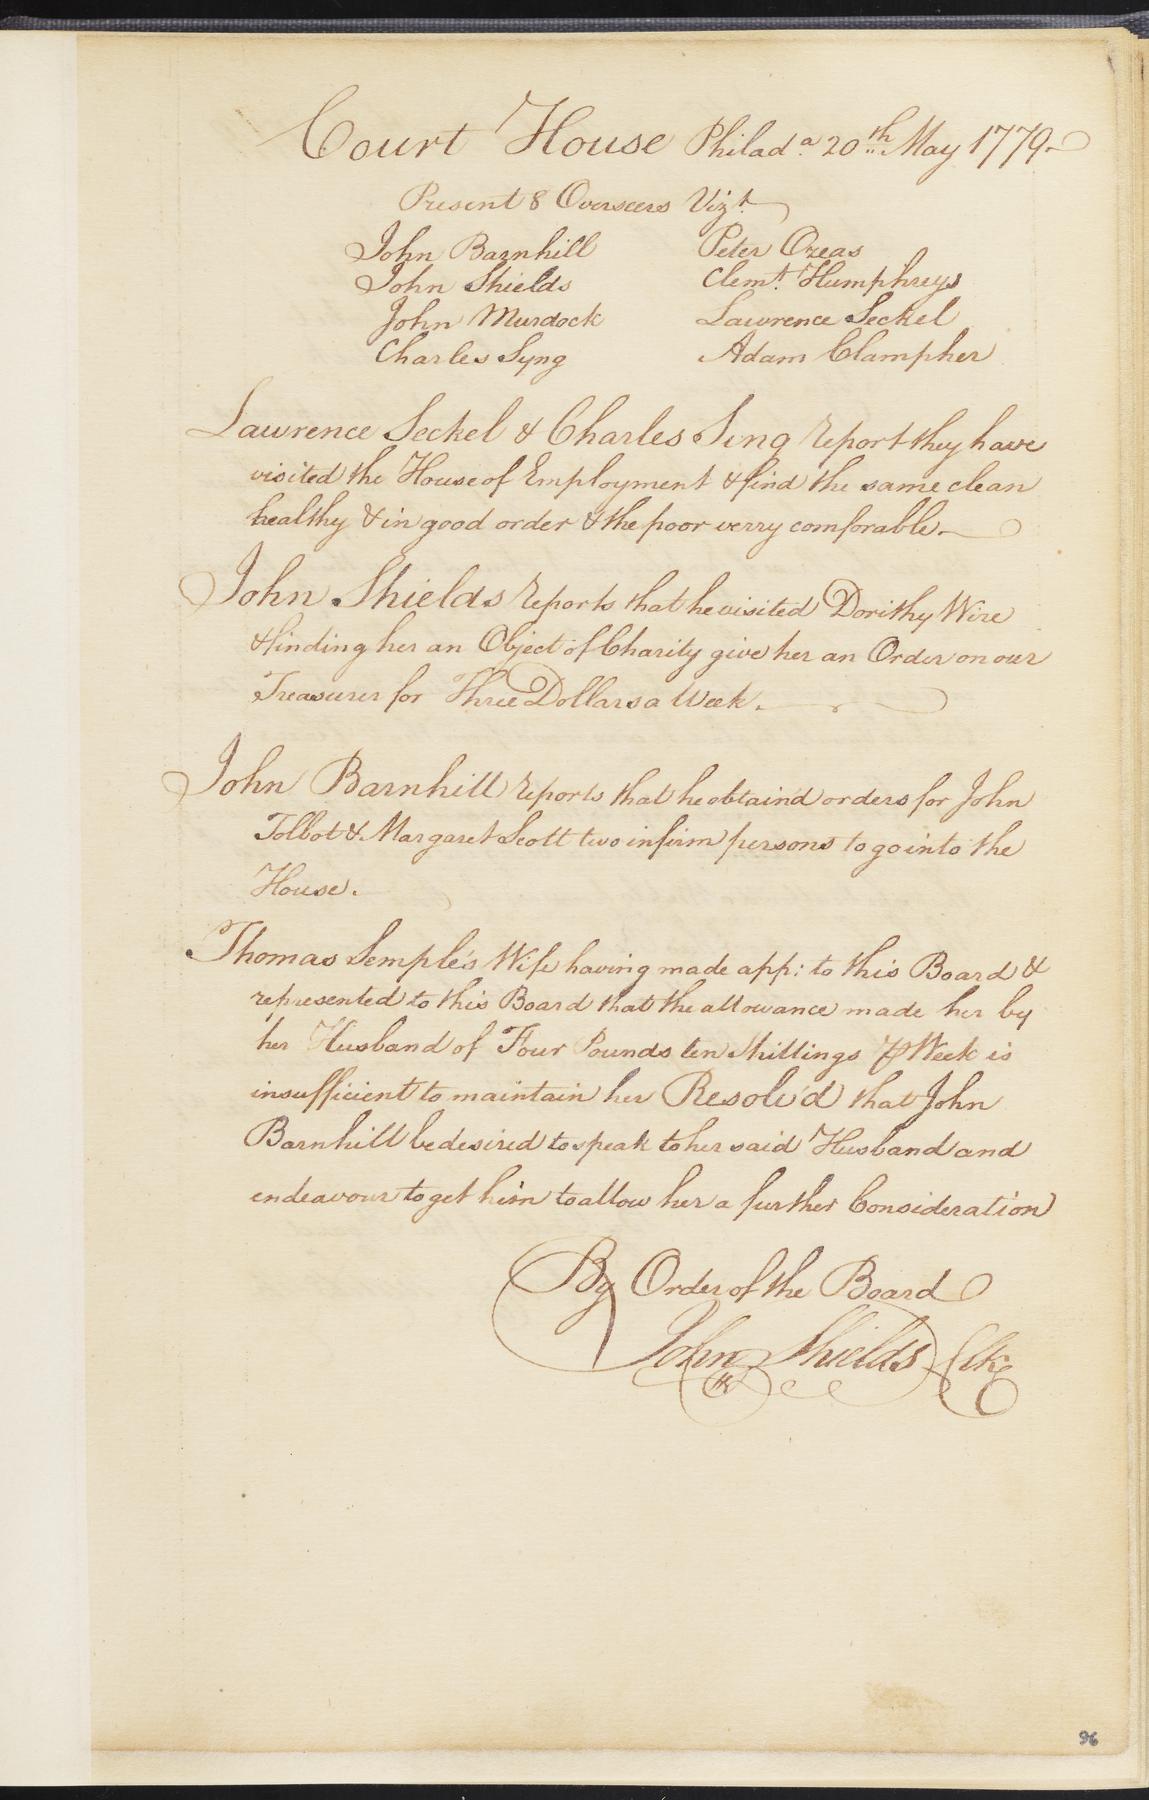 Court House Philad.a 20th May 1779
Present 8 Overseers Vizt.
John Barnhill Peter Ozeas
John Shields Clemt. Humphreys
John Murdock Lawrence Seckel
Charles Syng Adam Clampher
Lawrence Seckel & Charles Sing report they have
visited the House of Employment & find the same clean
healthy & in good order & the poor verry comforable.
John Shields reports that he visited Dorithy Wire
& finding her an Object of Charity give her an Order on our
Treasurer for Three Dollars a Week.
John Barnhill reports that he obtain'd orders for John
Tolbot & Margaret Scott two infirm persons to go into the
House.
Thomas Semple's Wife having made app: to this Board &
represented to this Board that the allowance made her by
her Husband of Four Pounds ten Shillings ⅌ Week is
insufficient to maintain her Resolv'd that John
Barnhill be desired to speak to her said Husband and
endeavour to get him to allow her a further Consideration
By Order of the Board
John Shields Clk
96